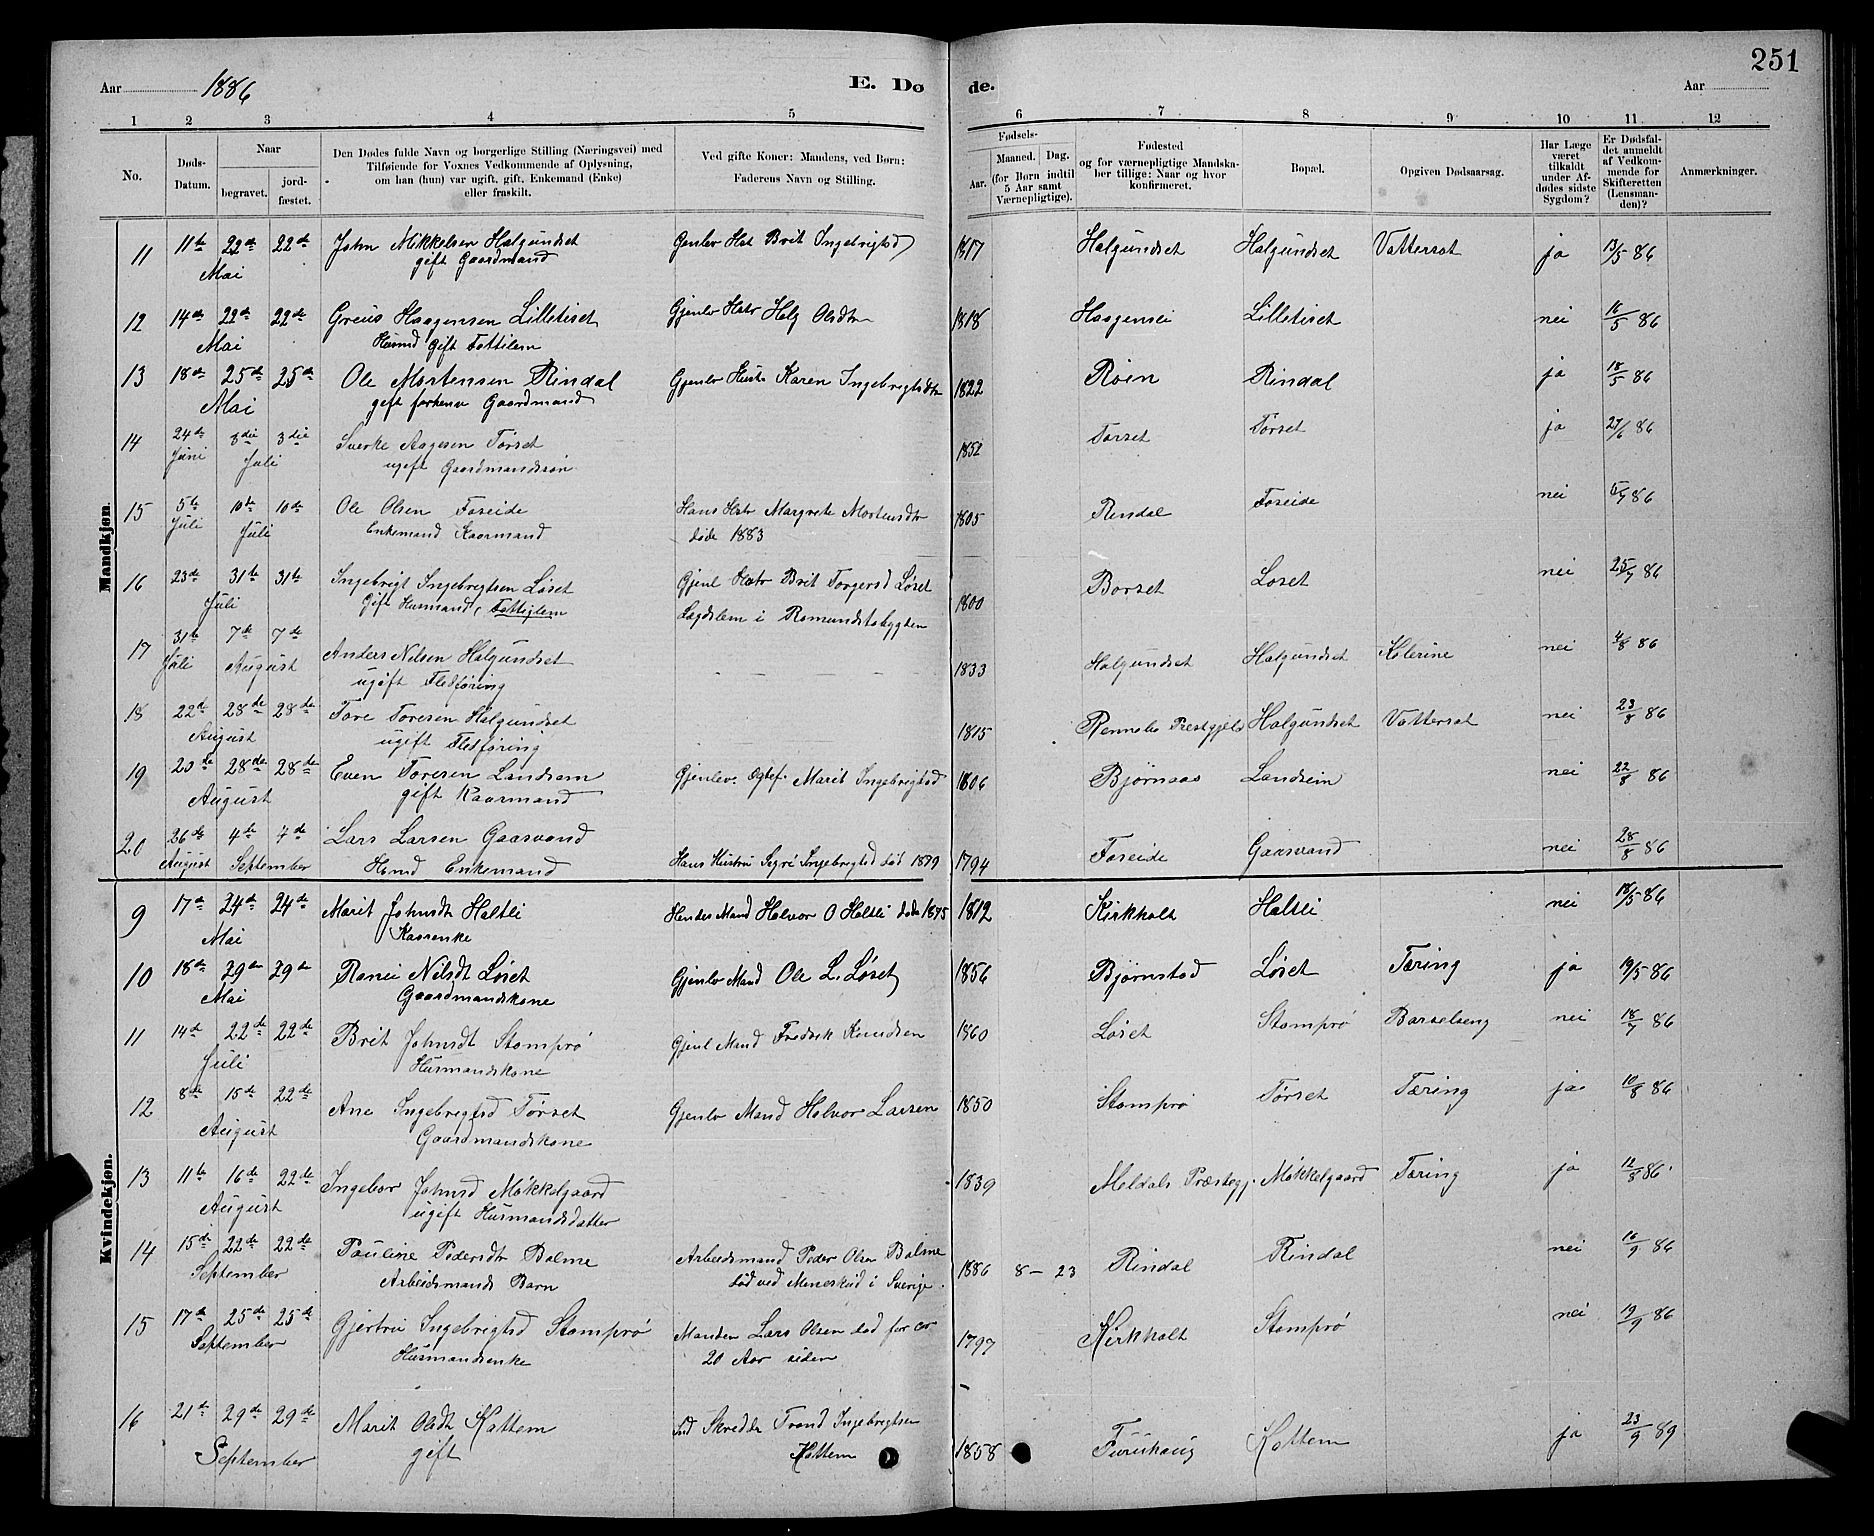 251
Aar 1886 E. Dø de. Aar
1 2 3 4 5 6 7 8 9 10 11 12
No. Døds-Datum. Naar begravet. jord-fæstet. Den Dødes fulde Navn og borgerlige Stilling (Næringsvei) med Tilføiende for Voxnes Vedkommende af Oplysning, om han (hun) var ugift, gift, Enkemand (Enke) eller fraskilt. Ved gifte Koner: Mandens, ved Børn: Faderens Navn og Stilling. Fødsels- Aar. Maaned. Dag. (for Børn indtil 5 Aar samt Værnepligtige). Fødested og for værnepligtige Mandska-ber tillige: Naar og hvor konfirmeret. Bopæl. Opgiven Dødsaarsag. Har Læge været tilkaldt under Af-dødes sidste Sygdom? Er Dødsfal-det anmeldt af Vedkom-mende for Skifteretten (Lensman-den)? Anmærkninger.
Mandkjøn.
11 11te 22de 22de John Mikkelsen Halgundset Gjenlev Hst Brit Ingebrigtsd 1817 Halgundset Halgundset Vattersot ja 13/5 86
Mai gift Gaardmand
12 14de 22de 22de Greius Haagensen Lilletiset Gjenlev Hstr Helg Olsdtr 1818 Haagensli Lilletiset nei 16/5 86
Mai Husmd gift Fattilem
13 18de 25de 25de Ole Mortensen Rindal Gjenlev Hustr Karen Ingebrigtsdtr 1822 Roen Rindal ja 18/5 86
Mai gift forhenv Gaardmand
14 24de 3die 3die Sverke Aagesen Tørset 1852 Tørset Tørset ja 27/6 86
Juni Juli ugift Gaardmandssøn
15 5te 10de 10de Ole Olsen Foseide Hans Hstr Margrete Mortensdtr 1805 Rindal Foseide nei 5/7 86
Juli Juli Enkemand Kaarmand døde 1883
16 23de 31te 31te Ingebrigt Ingebrigtsen Løset Gjenl Hstr Brit Torgersd Løset 1800 Børset Løset nei 25/7 86
Juli Gift Husmand, Fattiglem Lægdslem i Romundstabygden
17 31te 7de 7de Anders Nilsen Halgundset 1833 Halgundset Halgundset Kolerine nei 4/8 86
Juli August ugift Fledføring
18 22de 28de 28de Tore Toresen Halgundset 1815 Rennebo Præstgjeld Halgundset Vattersot nei 23/8 86
August ugift Fledføring
19 20de 28de 28de Even Toresen Landsem Gjenlev. Egtef. Marit Ingebrigtsd 1806 Bjørnaas Landsem nei 22/8 86
August gift Kaarmand
20 26de 4de 4de Lars Larsen Gaasvand Hans Hustru Sigri Ingebrigtsd død 1879 1794 Foseide Gaasvand nei 28/8 86
August September Husmd Enkemand
Kvindekjøn.
9 17de 24de 24de Marit Johnsdt Holtli Hendes Mand Halvor O Holtli døde 1875 1812 Kirkholt Holtli nei 18/5 86
Mai Kaarenke
10 18de 29de 29de Ranei Nilsdt Løset Gjenlev Mand Ole L. Løset 1856 Bjørnstad Løset Tæring ja 19/5 86
Mai Gaardmandskone
11 14de 22de 22de Brit Johnsdt Stomprø Gjenl Mand Fredrik Knudsen 1860 Løset Stomprø Barselseng nei 18/7 86
Juli Husmandskone
12 8de 15de 22de Ane Ingebrigtsd Tørset Gjenlev Mand Halvor Larsen 1850 Stomprø Tørset Tæring ja 10/8 86
August Gaardmandskone
13 11te 16de 22de Ingebor Johnsd Møkkelgaard 1839 Meldals Præstegj. Møkkelgaard Tæring ja 12/8 86
August ugift Husmandsdatter
14 15de 22de 22de Pauline Pedersdtr Bolme Arbeidsmand Peder Olsen Bolme 1886 8 – 23 Rindal Rindal nei 16/9 86
September Arbeidsmands Barn død ved Meneskud i Sverige.
15 17de 25de 25de Gjertru Ingebrigtsd Stomprø Manden Lars Olsen død for cr 1797 Kirkholt Stomprø nei 19/9 86
September Husmandsenke 20 Aar siden
16 21de 29de 29de Marit Olsdt Kattem Skredder Trond Ingebrigtsen 1858 Furuhaug Kattem ja 23/9 89
September gift Kattem